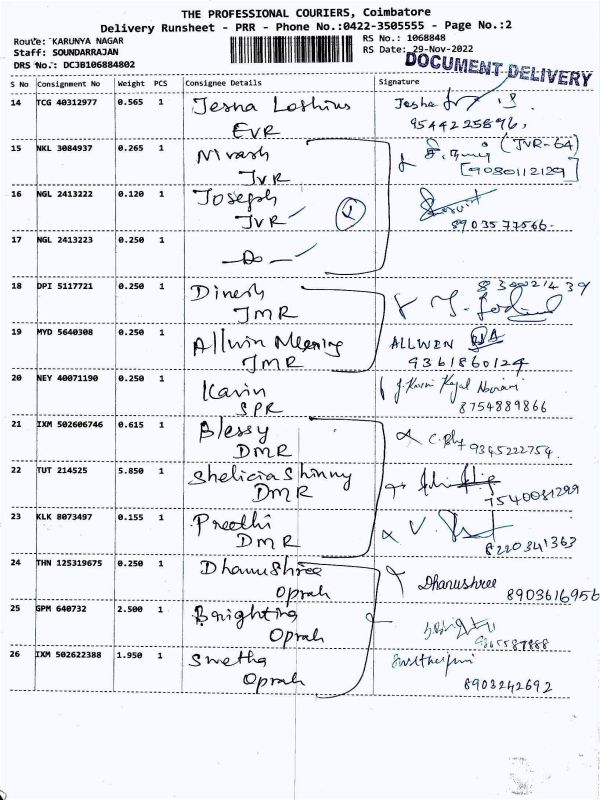 THE PROFESSIONAL COURIERS, Coimbatore
Delivery Runsheet - PRR - Phone No.:0422-3505555 - Page No.:2
Route: KARUNYA NAGAR RS No.: 1068848
Staff: SOUNDARRAJAN RS Date: 29-Nov-2022
DRS No.: DCJB106884802 DOCUMENT DELIVERY
S No Consignment No Weight PCS Consignee Details Signature
14 TCG 40312977 0.565 1 Jesha
EVR
15 NKL 3084937 0.265 1 Nivash (JVR-64)
JVR [9080112129]
16 NGL 2413222 0.120 1 Joseph
JVR 8903577566.
17 NGL 2413223 0.250 1 -Do-
18 DPI 5117721 0.250 1 Dinesh
JMR
19 MYD 5640308 0.250 1 Allwin ALLWEN
JMR 9361860124
20 NEY 40071190 0.250 1 Kavin
SPR 8754889866
21 IXM 502606746 0.615 1 Blessy 9345222754.
DMR
22 TUT 214525 5.850 1 Shelicia Shinny
DMR 7540031299
23 KLK 8073497 0.155 1 Preethi
DMR 8220341363
24 THN 125319675 0.250 1 Dhanushree Dhanushree
Oprah 8903616956
25 GPM 640732 2.500 1
Oprah
26 IXM 502622388 1.950 1 Swetha
Oprah 8903242692